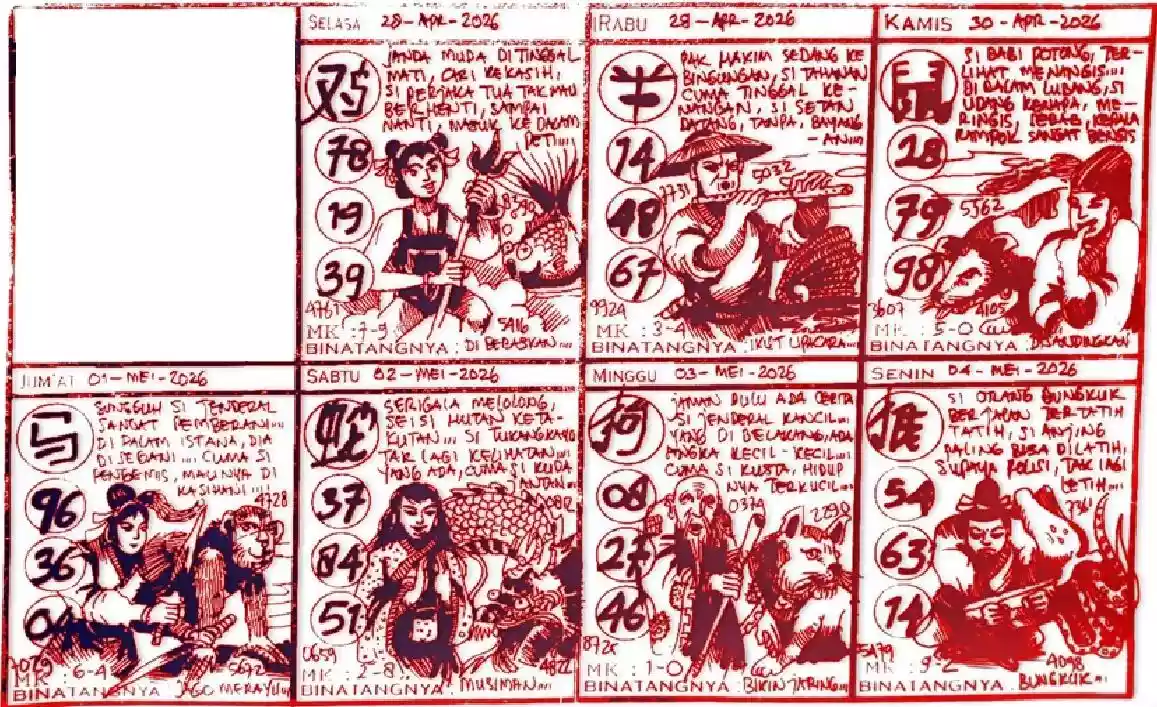 SELASA 28-APR-2026
JANDA MUDA DITINGGAL
MATI, CARI KEKASIH,
SI PERJAKA TUA TAK MAU
BERHENTI, SAMPAI
NANTI, MASUK KE DALAM
PETI....
鸡
78
19
39
8390
4761
5916
MK : 7-9
BINATANGNYA : DI BEBASKAN....
RABU 29-APR-2026
PAK HAKIM SEDANG KE
BINGUNGAN, SI TAHANAN
CUMA TINGGAL KE-
NANGAN, SI SETAN
DATANG, TANPA, BAYANG
-AN....
牛
74
48
67
5032
7731
9924
MK : 3-4
BINATANGNYA : IKUT UPACARA....
KAMIS 30-APR-2026
SI BABI POTONG, TER-
LIHAT MENANGIS....
DI DALAM LUBANG, SI
UDANG KENAPA, ME-
RINGIS, SEBAB, KEPALA
RAMPOK SANGAT BENGIS
鼠
28
79
98
5562
3607
4105
MK : 5-0
BINATANGNYA : DISANDINGKAN
JUM'AT 01-MEI-2026
SUNGGUH SI JENDERAL
SANGAT PEMBERANI....
DI DALAM ISTANA, DIA
DI SEGANI.... CUMA SI
PENGEMIS, MAUNYA DI
KASIHANI....
马
96
36
04
4728
7029
5672
MK : 6-4
BINATANGNYA : JAGO MERAYU....
SABTU 02-MEI-2026
SERIGALA MELOLONG,
SEISI HUTAN KETA-
KUTAN... SI TUKANG KAYU
TAK LAGI KELIHATAN...
YANG ADA, CUMA SI KUDA
JANTAN....
蛇
37
84
51
0659
MK : 2-8
BINATANGNYA : MUSIMAN....
MINGGU 03-MEI-2026
JAMAN DULU ADA CERITA
SI JENDERAL KANCIL...
YANG DI BELAKANG, ADA
ANGKA KECIL-KECIL...
CUMA SI KUSTA, HIDUP
NYA TERKUCIL....
狗
08
27
46
0374
MK : 1-0
BINATANGNYA : BIKIN JARING....
SENIN 04-MEI-2026
SI ORANG BUNGKUK
BERJALAN TERTATIH
TATIH, SI ANJING
PALING BISA DILATIH,
SUPAYA POLISI, TAK LAGI
LETIH....
54
63
74
5479
4098
MK : 9-2
BINATANGNYA : BUNGKUK...